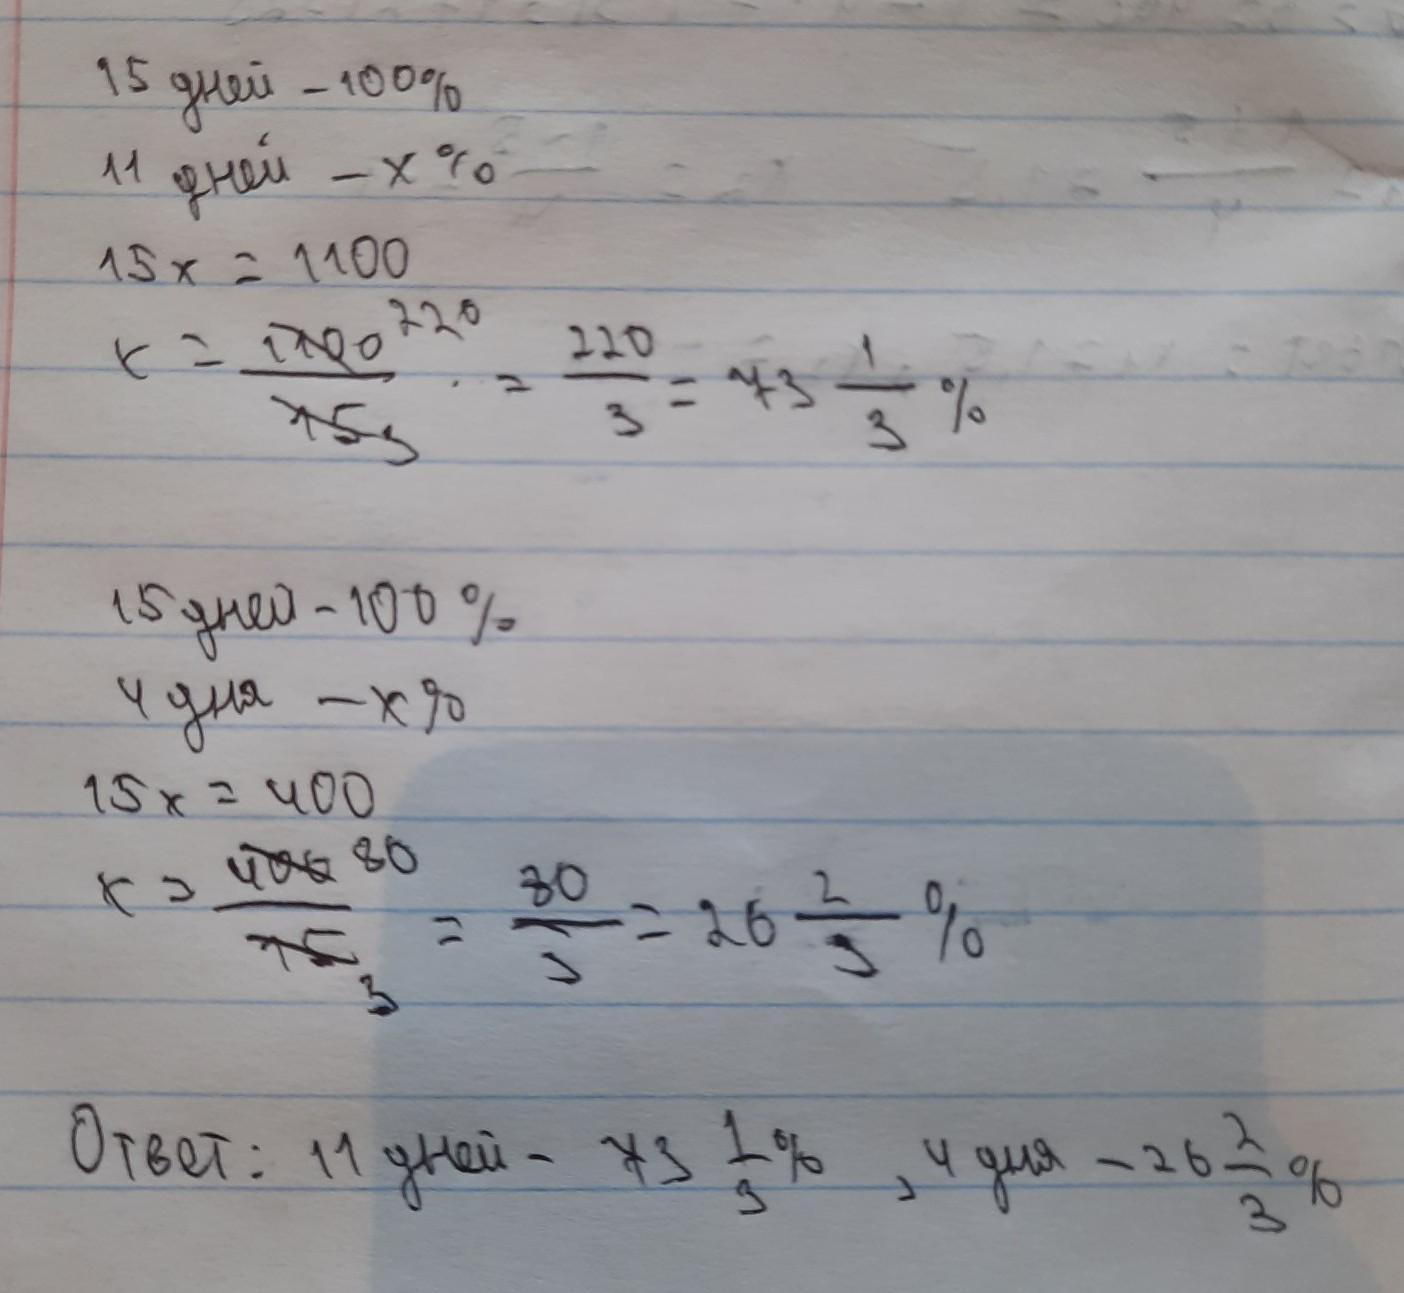 15 дней - 100%
11 дней - x %
15x = 1100
x = 1100 220 / 15 3 = 220/3 = 73 1/3 %
15 дней - 100 %
4 дня - x%
15x = 400
x = 400 80 / 15 3 = 80/3 = 26 2/3 %
Ответ: 11 дней - 73 1/3 % , 4 дня - 26 2/3 %